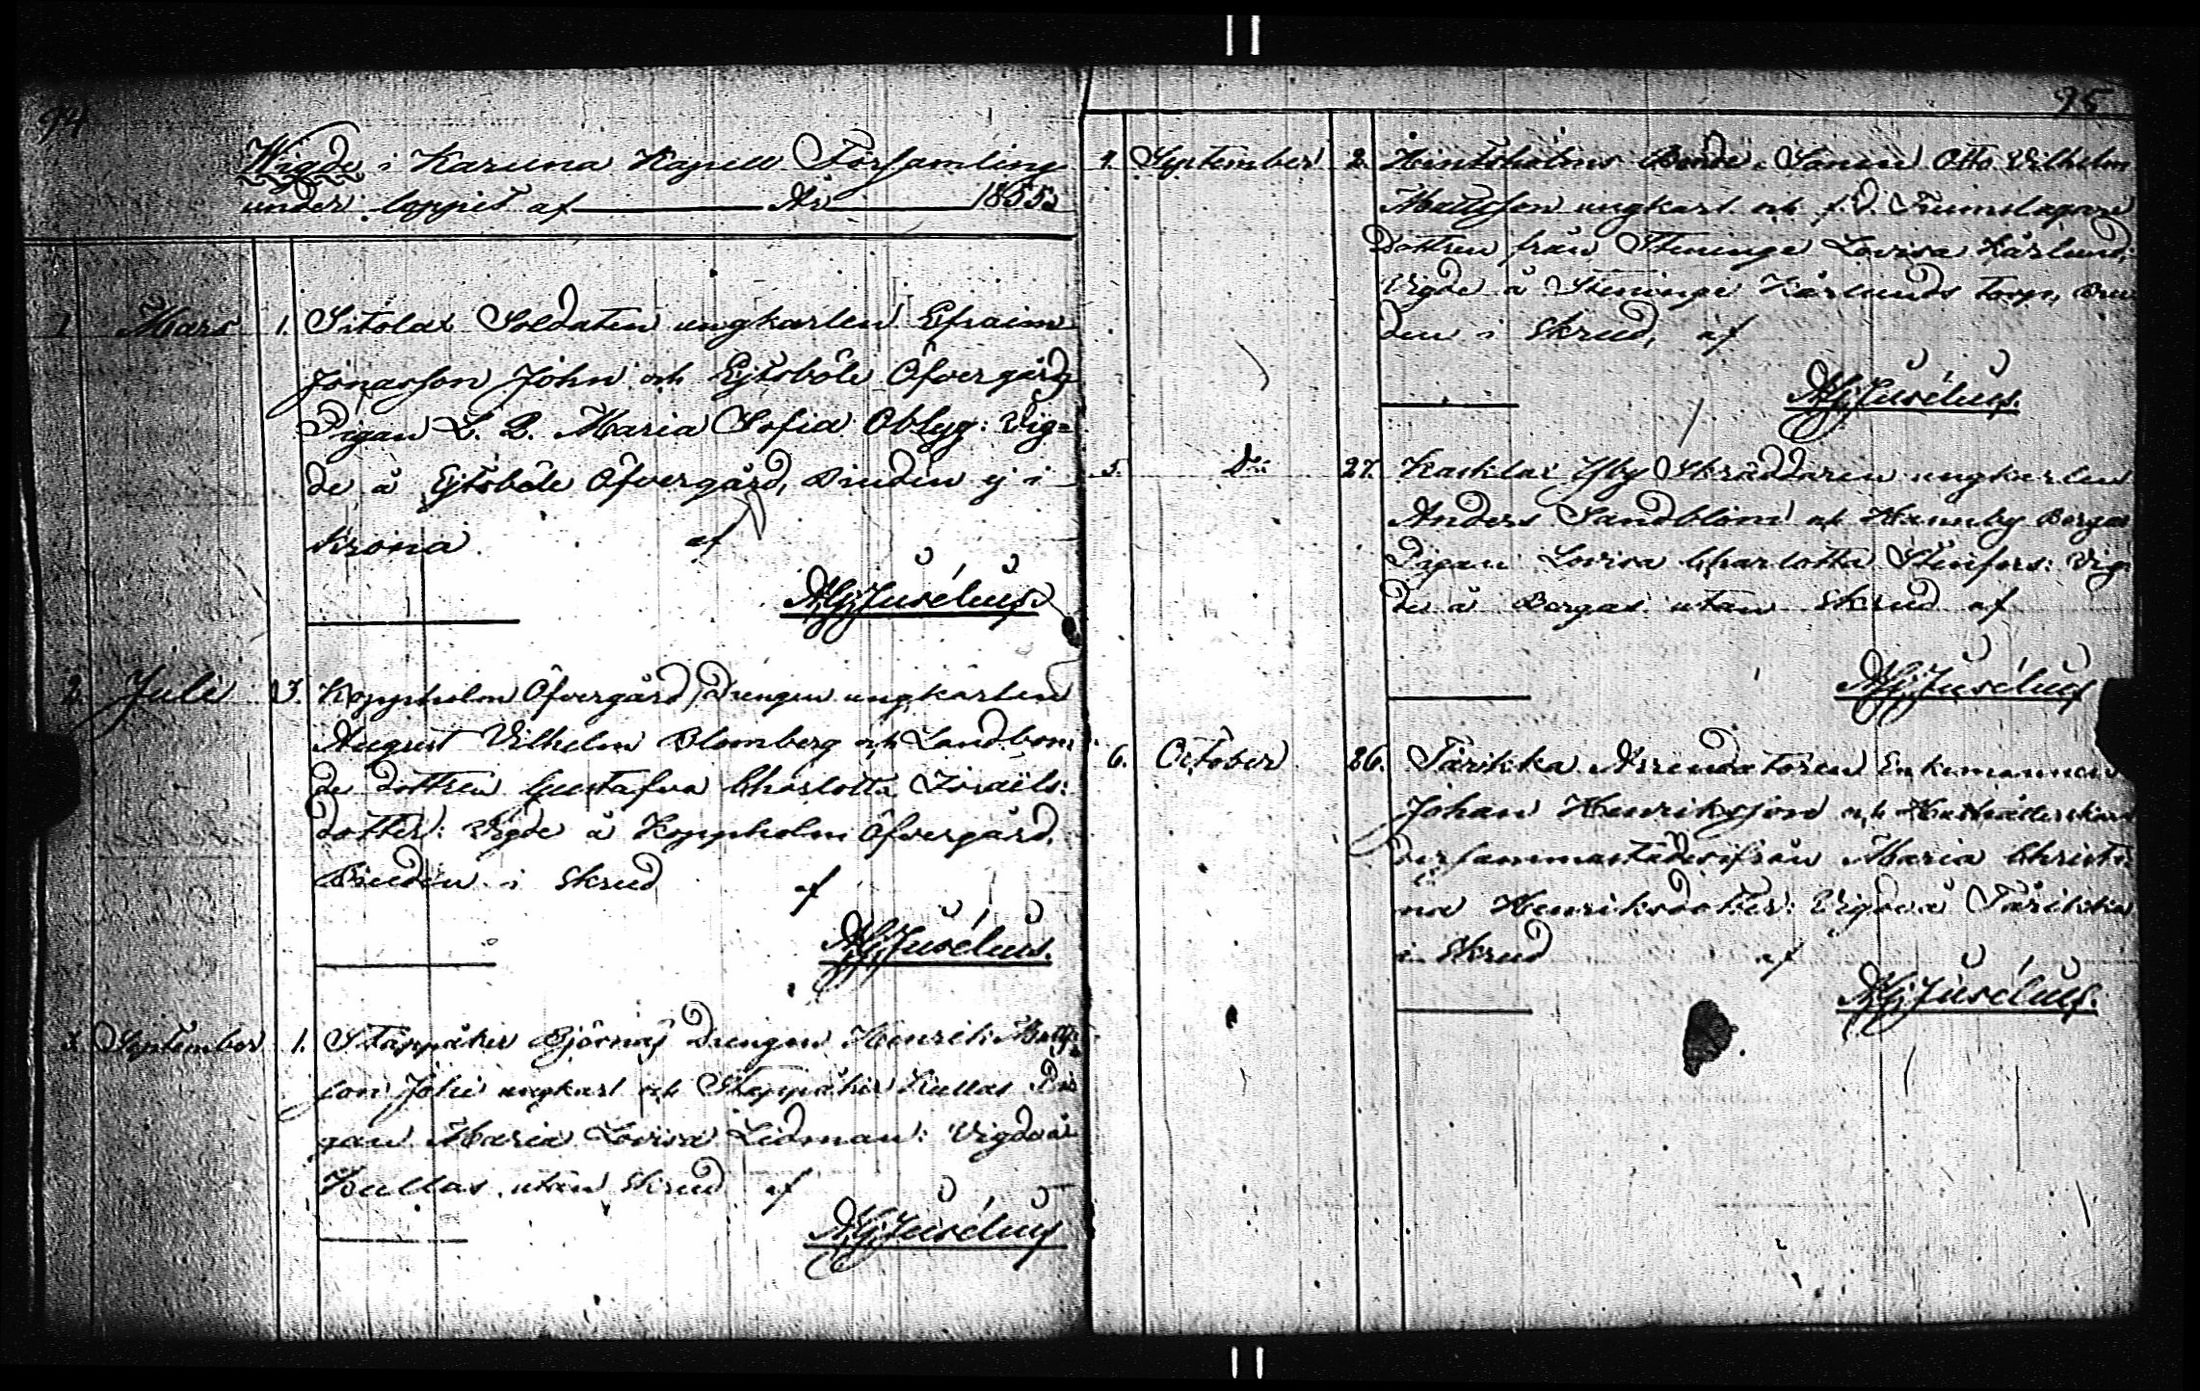 94
Wigde i Karuna Kapell Församling
under loppet af År 1855.
1 Mars 1. Sitolax Soldaten ungkarlen Efraim
Jonasson John och Ejtsböle Öfvergård
Pigan L. B. Maria Sofia Oblyg: Vig-
de å Ejtsböle Öfvergård, Bruden ej i
Krona af
A.G. Jusélius.
2. Juli 3. Koppholm Öfvergård, Drengen ungkarlen
August Vilhelm Blomberg och Landbon-
de dottren Gustafva Charlotta Israëls:
dotter: Vigde å Koppholm Öfvergård.
Bruden i Skrud af
A.G. Jusélius.
3. September 1. Stappåker Björnäs Drengen Henrik Matts
son Johi ungkarl och Stappåker Kullas Pi
gan Maria Lovisa Lidman: Vigde å
Kullas, utan Skrud af
A.G. Jusélius
95
4. September 2. Hintsholms Bonde Sonen Otto Vilhelm
Mattsson ungkarl och f.d. Trumslagare
dottren från Steninge Lovisa Kärlund;
Vigde å Steninge Kärlunds torp, Bru
den i Skrud, af
A.G. Jusélius.
5. Dö 27. Kasklax Yby Skräddaren ungkarlen
Anders Sandblom och Hamnby Bergas
Pigan Lovisa Charlotta Stenfors: Vig-
de å Bergas utan Skrud af
A.G. Jusélius
6. October 26. Tärikka Arrendatoren Enkemannen
Johan Henriksson och Hushållerskan
dersammastädesifrån Maria Christi
na Henriksdotter: Vigde å Tärikka
i Skrud af
A.G. Jusélius.